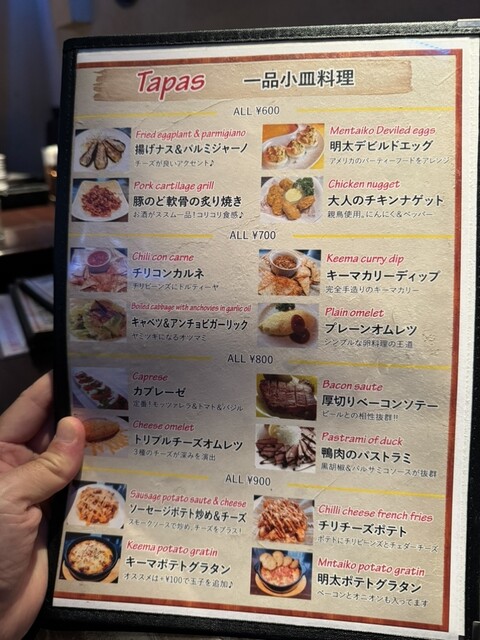 Tapas 一品小皿料理
ALL ¥600
Fried eggplant & parmigiano
揚げナス&パルミジャーノ
チーズが良いアクセント♪
Mentaiko Deviled eggs
明太デビルドエッグ
アメリカのパーティーフードをアレンジ
Pork cartilage grill
豚のど軟骨の炙り焼き
お酒がススム一品!コリコリ食感♪
Chicken nugget
大人のチキンナゲット
親鳥使用。にんにく&ペッパー
ALL ¥700
Chili con carne
チリコンカルネ
チリビーンズにトルティーヤ
Keema curry dip
キーマカリーディップ
完全手造りのキーマカリー
Boiled cabbage with anchovies in garlic oil
キャベツ&アンチョビガーリック
ヤミツキになるオツマミ
Plain omelet
プレーンオムレツ
シンプルな卵料理の王道
ALL ¥800
Caprese
カプレーゼ
定番!モッツァレラ&トマト&バジル
Bacon saute
厚切りベーコンソテー
ビールとの相性抜群!!
Cheese omelet
トリプルチーズオムレツ
3種のチーズが深みを演出
Pastrami of duck
鴨肉のパストラミ
黒胡椒&バルサミコソースが抜群
ALL ¥900
Sausage potato saute & cheese
ソーセージポテト炒め&チーズ
スモークソースで炒め、チーズをプラス!
Chilli cheese french fries
チリチーズポテト
ポテトにチリビーンズとチェダーチーズ
Keema potato gratin
キーマポテトグラタン
オススメは+¥100で玉子を追加♪
Mntaiko potato gratin
明太ポテトグラタン
ベーコンとオニオンも入ってます